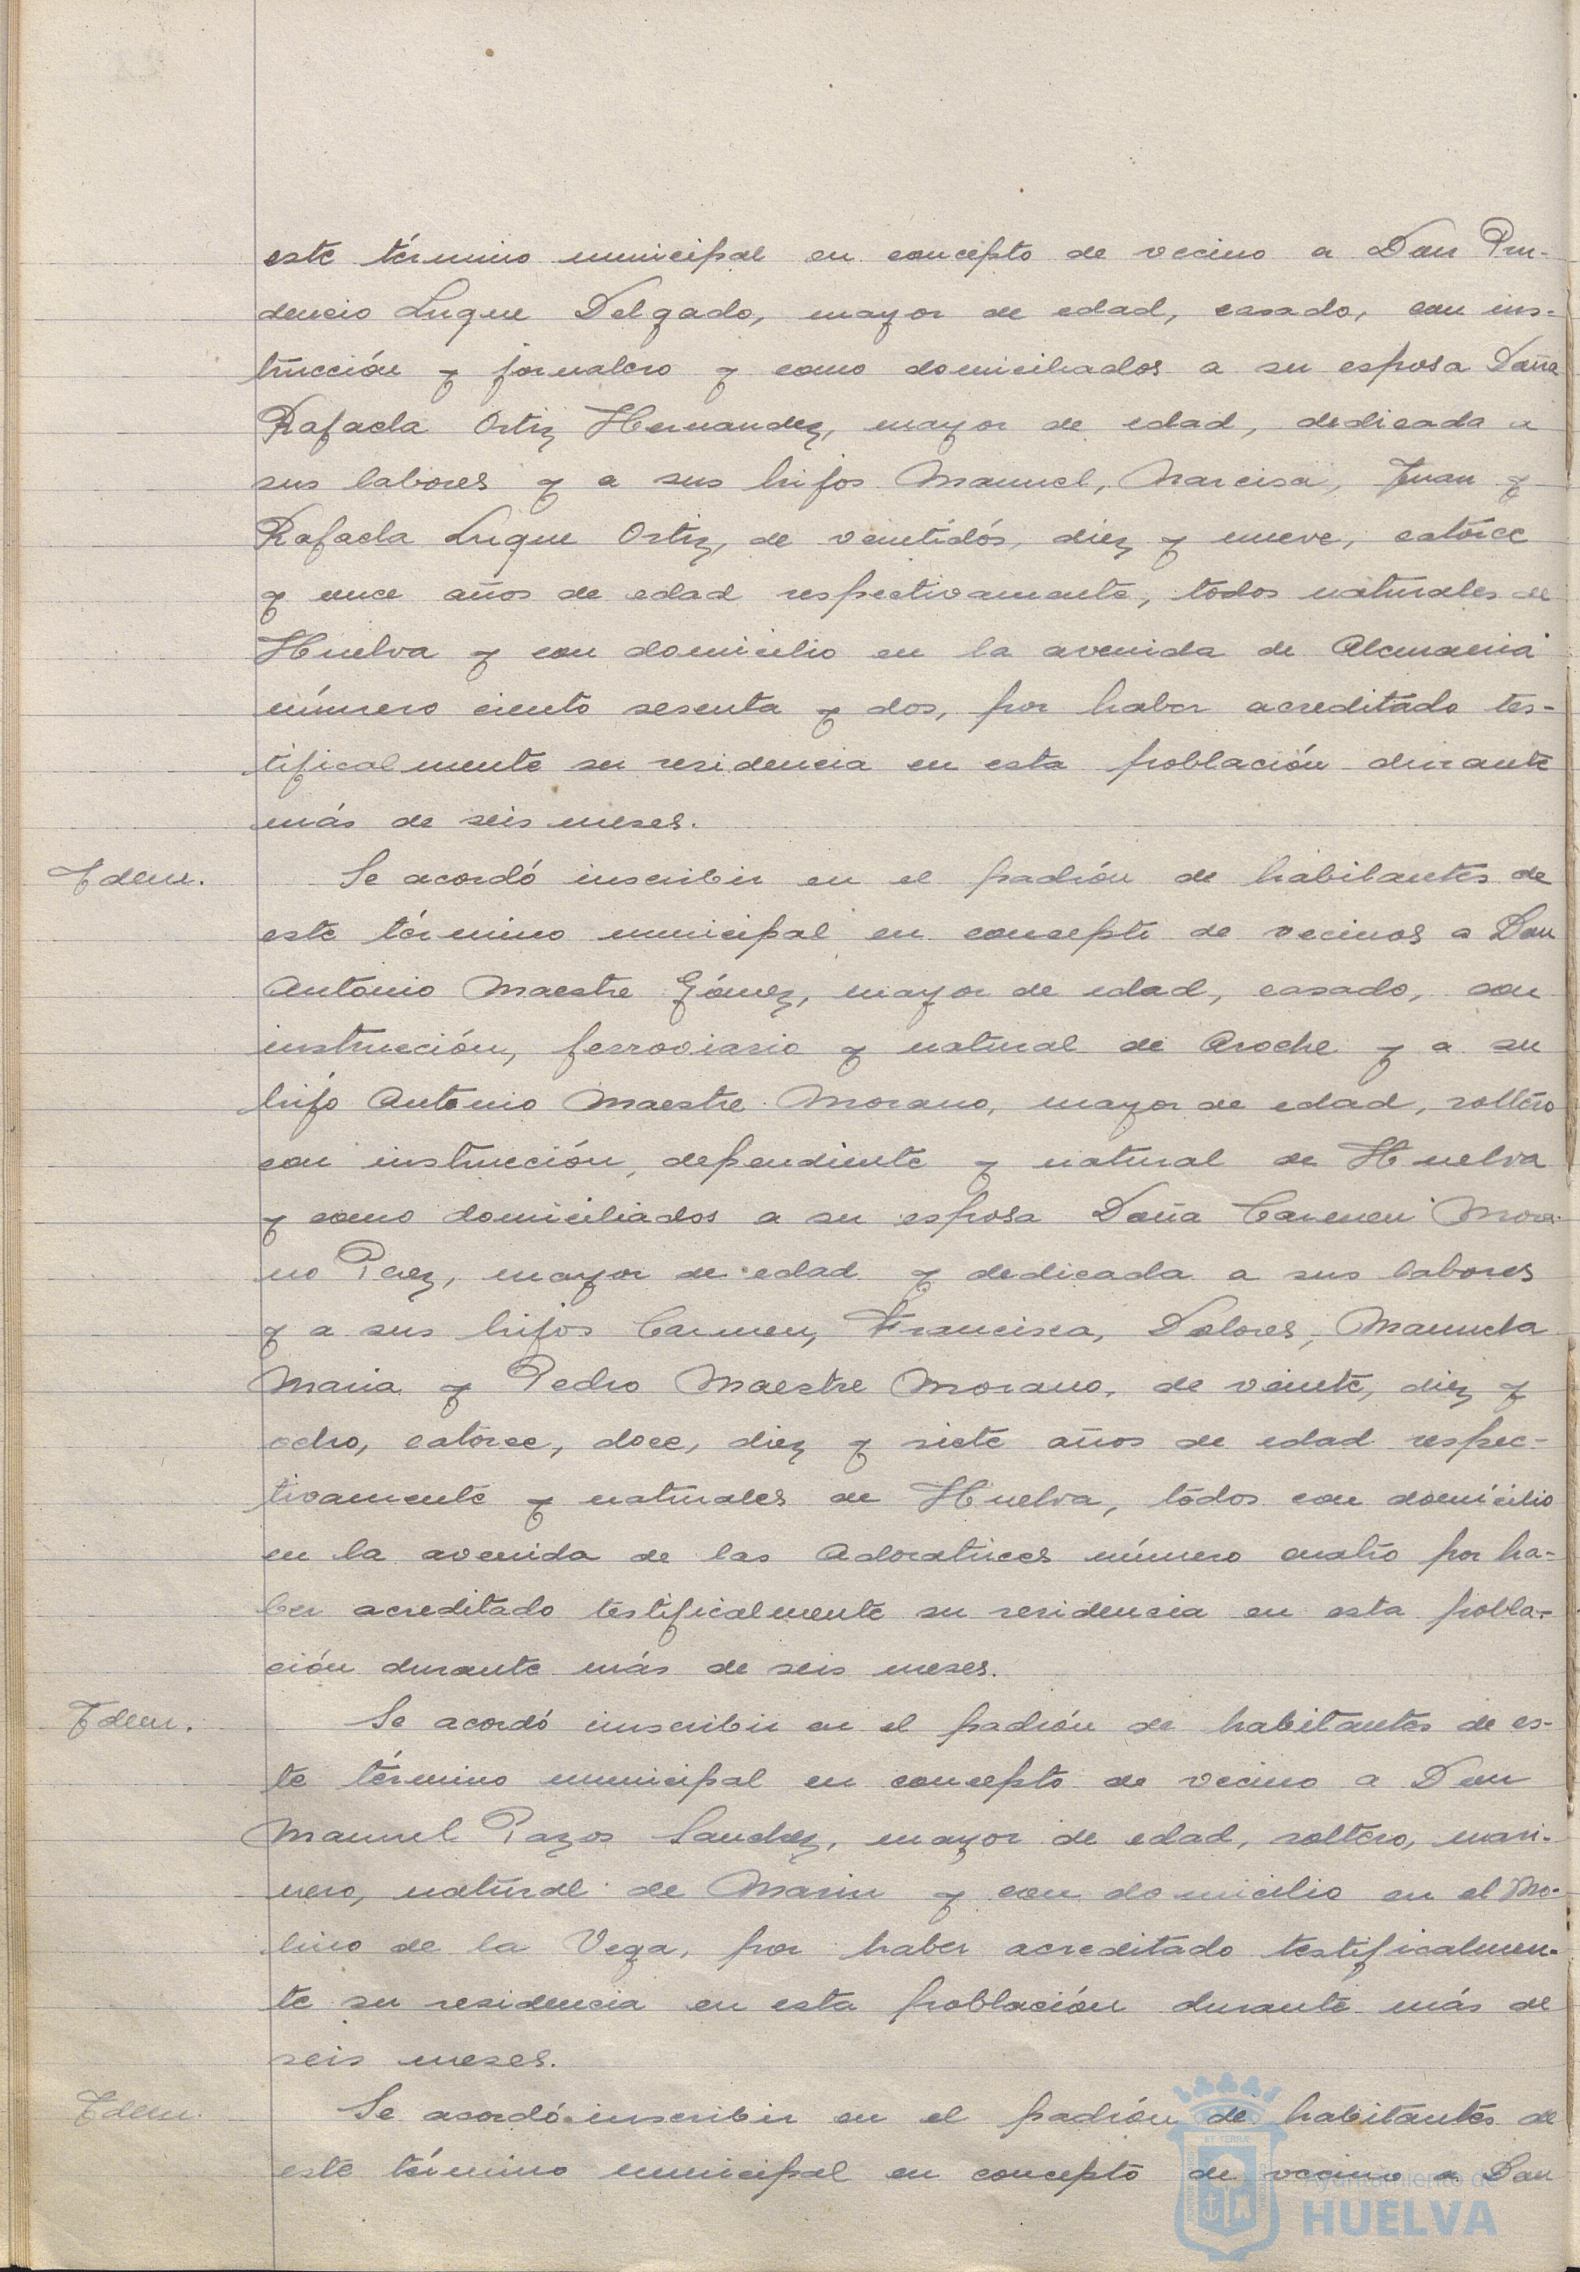 este término municipal en concepto de vecino a Don Pru-
dencio Luque Delgado, mayor de edad, casado, con ins-
trucción y jornalero y como domiciliados a su esposa Doña
Rafaela Ortiz Hernandez, mayor de edad, dedicada a
sus labores y a sus hijos Manuel, Narcisa, Juan y
Rafaela Luque Ortiz, de veintidós, diez y nueve, catorce
y once años de edad respectivamente, todos naturales de
Huelva y con domicilio en la avenida de Alemania
número ciento sesenta y dos, por haber acreditado tes-
tificalmente su residencia en esta población durante
más de seis meses.
Idem. Se acordó inscribir en el padrón de habitantes de
este término municipal en consepto de vecinos a Don
Antonio Maestre Gómez, mayor de edad, casado, con
instrucción, ferroviario y natural de Aroche y a su
hijo Antonio Maestre Morano, mayor de edad, soltero
con instrucción, dependiente y natural de Huelva
y como domiciliados a su esposa Doña Carmen Mora-
no Paez, mayor de edad y dedicada a sus labores
y a sus hijos Carmen, Francisca, Dolores, Manuela
Maria y Pedro Maestre Morano, de veinte, diez y
ocho, catorce, doce, diez y siete años de edad respec-
tivamente y naturales de Huelva, todos con domicilio
en la avenida de las Adoratrices número cuatro por ha-
ber acreditado testificalmente su residencia en esta pobla-
ción durante más de seis meses.
Idem. Se acordó inscribir en el padrón de habitantes de es-
te término municipal en concepto de vecino a Don
Manuel Pazos Sanchez, mayor de edad, soltero, mari-
nero, natural de Marin y con domicilio en el Mo-
lino de la Vega, por haber acreditado testificalmen-
te su residencia en esta población durante más de
seis meses.
Idem. Se acordó inscribir en el padrón de habitantes de
este término municipal en concepto de vecino a Don
Ayuntamiento de
HUELVA